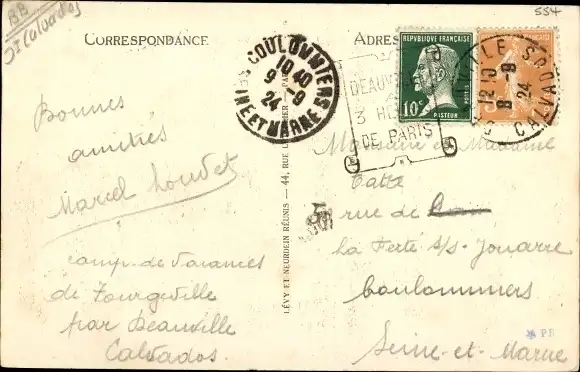 BB
Calvados
554
CORRESPONDANCE
ADRES
COULOMMIERS
10 40
9 - 9
24
SEINE ET MARNE
DEAUV
3 HE
DE PARIS
RÉPUBLIQUE FRANÇAISE
10c
POSTES
PASTEUR
12 10
8 - 9
24
CALVADOS
Bonnes
amitiés
Marcel
camp de vacances
de Tourgeville
par Deauville
Calvados.
LÉVY ET NEURDEIN RÉUNIS - 44, RUE LETELLIER - PARIS
Monsieur et Madame
rue de
la Ferté s/s Jouarre
Coulommiers
Seine-et-Marne